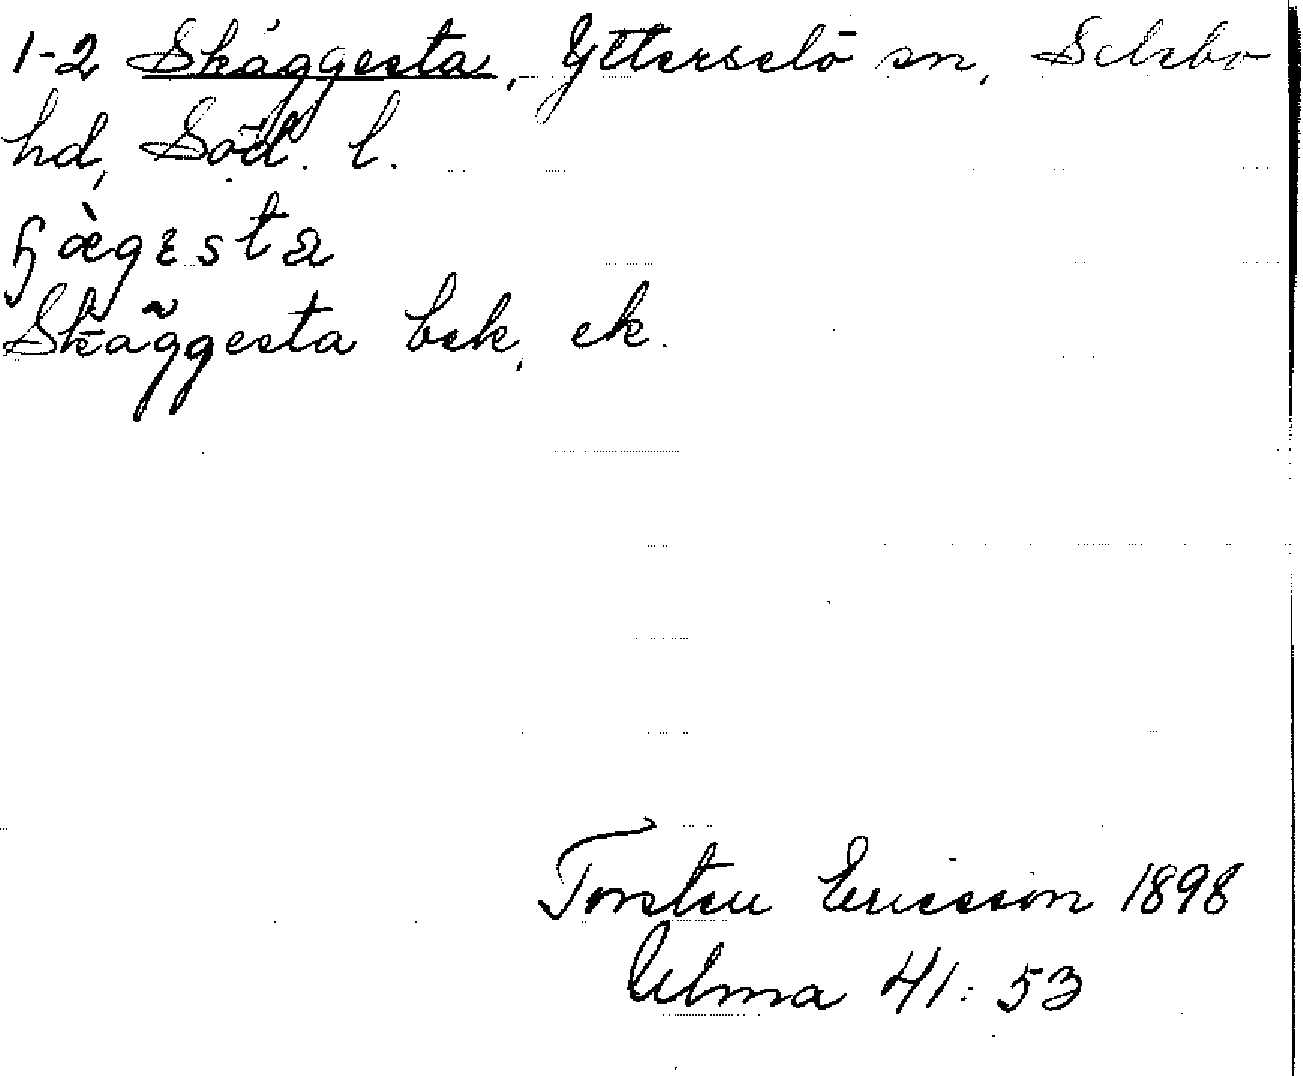 1-2 Skäggesta, Ytterselö sn, Selebo
hd, Söd. l.
ɧæ̀gɛsta
Skäggesta bek, ek.
Torsten Ericsson 1898
Ulma 41:53